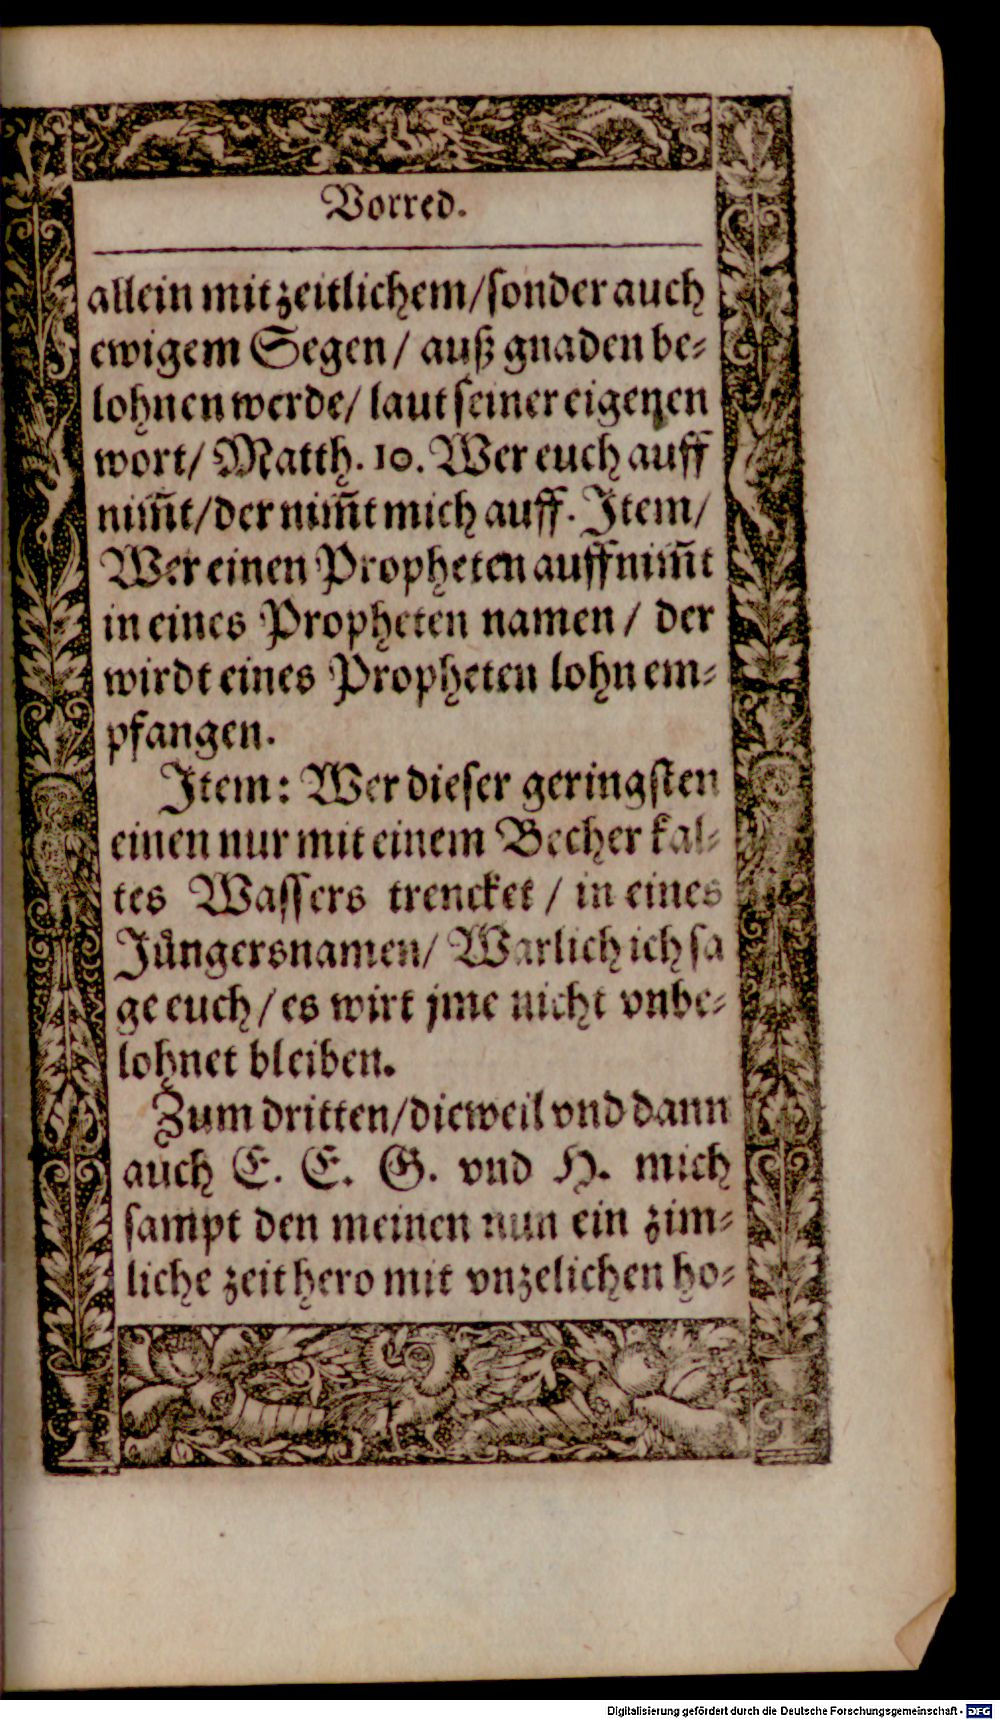 Vorred.
allein mit zeitlichem/ sonder auch
ewigem Segen/ auß gnaden be-
lohnen werde/ laut seiner eigenen
wort/ Matth. 10. Wer euch auff
nim̃t/ der nim̃t mich auff. Item/
Wer einen Propheten auffnim̃t
in eines Propheten namen/ der
wirdt eines Propheten lohn em-
pfangen.
Item: Wer dieser geringsten
einen nur mit einem Becher kal-
tes Wassers trencket/ in eines
Jüngersnamen/ Warlich ich sa
ge euch/ es wirt jme nicht vnbe-
lohnet bleiben.
Zum dritten/ dieweil vnd dann
auch E. E. G. vnd H. mich
sampt den meinen nun ein zim-
liche zeit hero mit vnzelichen ho-
Digitalisierung gefördert durch die Deutsche Forschungsgemeinschaft - DFG